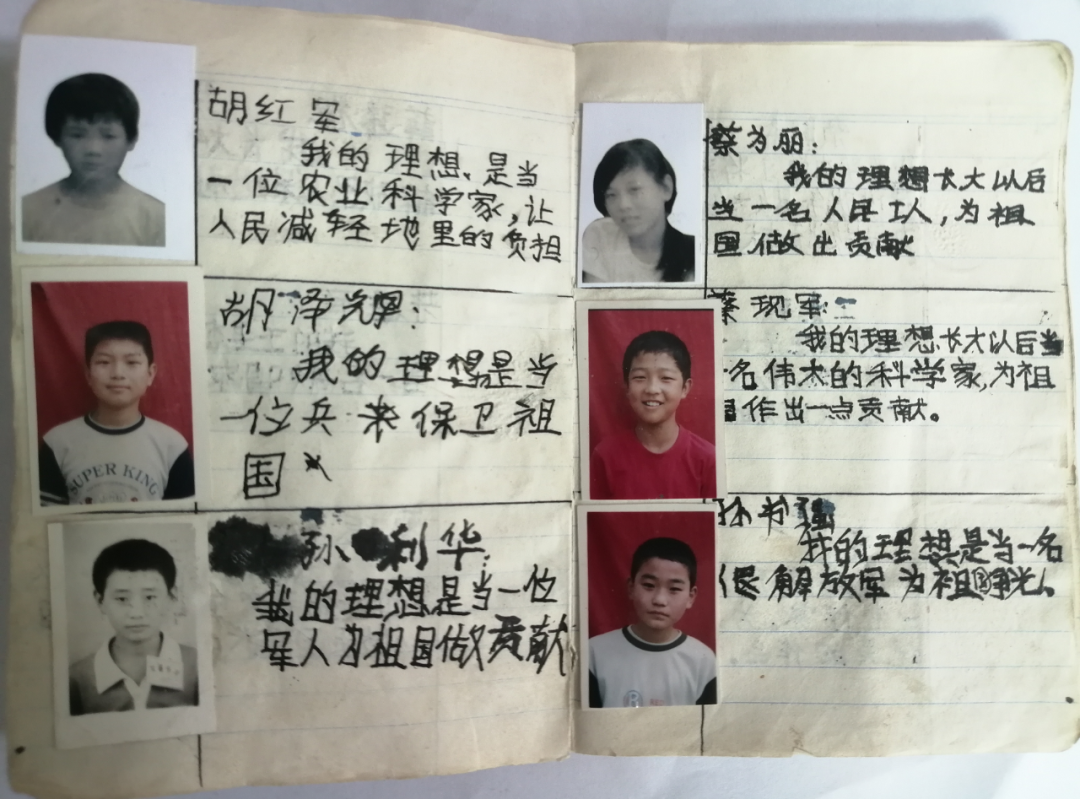 胡红军
我的理想、是当
一位农业科学家,让
人民减轻地里的负担
胡泽光男:
我的理想是当
一位兵来保卫祖
国
SUPER KING
孙利华:
我的理想是当一位
军人为祖国做贡献
蔡为丽:
我的理想长大以后
当一名人民工人,为祖
国做出贡献
蔡现军:
我的理想长大以后当
名伟大的科学家,为祖
国作出一点贡献。
孙书强
我的理想是当一名
解放军为祖